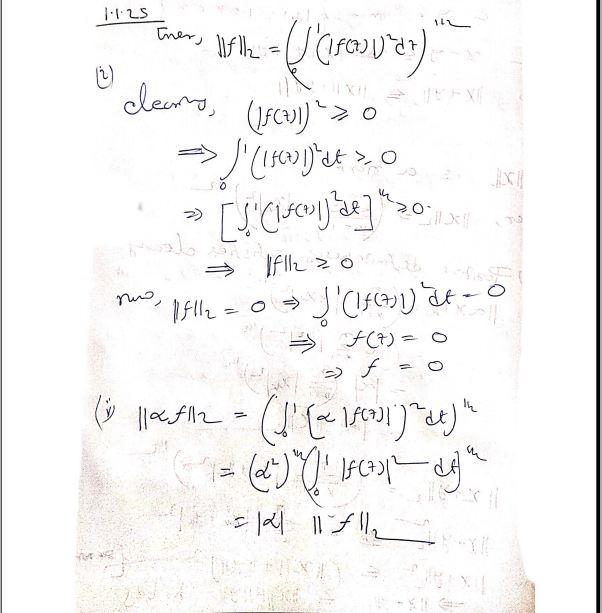 1.1.25
Then, ||f||₂ = (∫₀¹ (|f(t)|)² dt)^{1/2}
(i)
clearly, (|f(t)|)² ≥ 0
⇒ ∫₀¹ (|f(t)|)² dt ≥ 0
⇒ [∫₀¹ (|f(t)|)² dt]^{1/2} ≥ 0
⇒ ||f||₂ ≥ 0
now, ||f||₂ = 0 ⇒ ∫₀¹ (|f(t)|)² dt = 0
⇒ f(t) = 0
⇒ f = 0
(ii) ||αf||₂ = (∫₀¹ [α |f(t)|)² dt)^{1/2}
= (α²)^{1/2} (∫₀¹ |f(t)|² dt]^{1/2}
= |α| ||f||₂